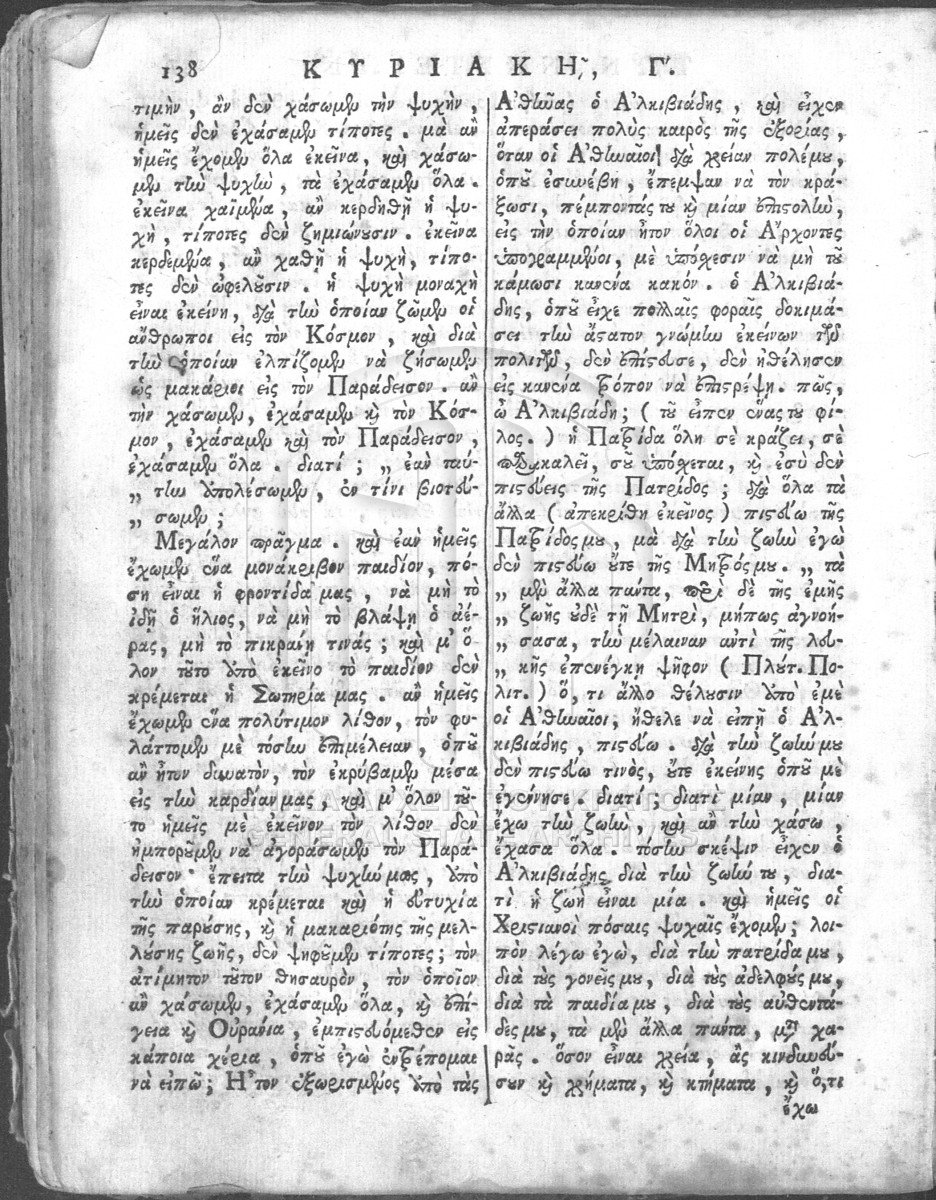 138 ΚΥΡΙΑΚΗ͂, Γ'.
τιμὴν, ἂν δὲν χάσωμεν τὴν ψυχὴν,
ἡμεῖς δὲν ἐχάσαμεν τίποτες. μὰ ἂν
ἡμεῖς ἔχομεν ὅλα ἐκεῖνα, καὶ χάσω-
μεν τὼ ψυχὼ, τὰ ἐχάσαμεν ὅλα.
ἐκεῖνα χαϊμένα, ἂν κερδηθῇ ἡ ψυ-
χὴ, τίποτες δὲν ζημιώνουσιν. ἐκεῖνα
κερδεμένα, ἂν χαθῇ ἡ ψυχὴ, τίπο-
τες δὲν ὠφελοῦσιν. ἡ ψυχὴ μοναχὴ
εἶναι ἐκείνη, διὰ τὼ ὁποίαν ζῶμεν οἱ
ἄνθρωποι εἰς τὸν Κόσμον, καὶ διὰ
τὼ ὁποίαν ἐλπίζομεν νὰ ζήσωμεν
ὡς μακάριοι εἰς τὸν Παράδεισον. ἂν
τὴν χάσωμεν, ἐχάσαμεν καὶ τὸν Κόσ-
μον, ἐχάσαμεν καὶ τὸν Παράδεισον,
ἐχάσαμεν ὅλα. διατί; „ ἐὰν ταύ-
„ τω ἀπολέσωμεν, ἐν τίνι βιοτεύ-
„ σωμεν;
Μεγάλον πρᾶγμα. καὶ ἐὰν ἡμεῖς
ἔχωμεν ἕνα μονάκριβον παιδίον, πό-
ση εἶναι ἡ φροντίδα μας, νὰ μὴ τὸ
ἰδῇ ὁ ἥλιος, νὰ μὴ τὸ βλάψῃ ὁ ἀέ-
ρας, μὴ τὸ πικράνῃ τινάς; καὶ μ' ὅ-
λον τοῦτο ἀπὸ ἐκεῖνο τὸ παιδίον δὲν
κρέμεται ἡ Σωτηρία μας. ἂν ἡμεῖς
ἔχωμεν ἕνα πολύτιμον λίθον, τὸν φυ-
λάττομεν μὲ τόσω ἐπιμέλειαν, ὁποῦ
ἂν ἦτον δυνατὸν, τὸν ἐκρύβαμεν μέσα
εἰς τὼ καρδίαν μας, καὶ μ' ὅλον τοῦ-
το ἡμεῖς μὲ ἐκεῖνον τὸν λίθον δὲν
ἠμποροῦμεν νὰ ἀγοράσωμεν τὸν Παρά-
δεισον· ἔπειτα τὼ ψυχώ μας, ἀπὸ
τὼ ὁποίαν κρέμεται καὶ ἡ εὐτυχία
τῆς παρούσης, καὶ ἡ μακαριότης τῆς μελ-
λούσης ζωῆς, δὲν ψηφοῦμεν τίποτες; τὸν
ἀτίμητον τοῦτον θησαυρὸν, τὸν ὁποῖον
ἂν χάσωμεν, ἐχάσαμεν ὅλα, καὶ ἐπί-
γεια καὶ Οὐράνια, ἐμπιστευόμεθεν εἰς
κάποια χέρια, ὁποῦ ἐγὼ ἐντρέπομαι
νὰ εἰπῶ; Ἦτον ἐξωρισμένος ἀπὸ τὰς
Ἀθήνας ὁ Ἀλκιβιάδης, καὶ εἶχεν
ἀπεράσει πολὺς καιρὸς τῆς ἐξορίας,
ὅταν οἱ Ἀθηναῖοι διὰ χρείαν πολέμου,
ὁποῦ ἐσυνέβη, ἔπεμψαν νὰ τὸν κρά-
ξωσι, πέμποντάς του καὶ μίαν ἐπιστολὼ,
εἰς τὴν ὁποίαν ἦτον ὅλοι οἱ Ἄρχοντες
ὑπογραμμένοι, μὲ ὑπόσχεσιν νὰ μὴ τοῦ
κάμωσι κανένα κακόν. ὁ Ἀλκιβιά-
δης, ὁποῦ εἶχε πολλαῖς φοραῖς δοκιμά-
σει τὼ ἄστατον γνώμω ἐκείνων τῶν
πολιτῶν, δὲν ἐπίστευσε, δὲν ἠθέλησεν
εἰς κανένα τρόπον νὰ ἐπιστρέψῃ. πῶς,
ὦ Ἀλκιβιάδη; ( τοῦ εἶπεν ἕνας του φί-
λος. ) ἡ Πατρίδα ὅλη σὲ κράζει, σὲ
παρακαλεῖ, σοῦ ὑπόσχεται, καὶ ἐσὺ δὲν
πιστεύεις τῆς Πατρίδος; διὰ ὅλα τὰ
ἄλλα ( ἀπεκρίθη ἐκεῖνος ) πιστεύω τῆς
Πατρίδος μου, μὰ διὰ τὼ ζωὼ ἐγὼ
δὲν πιστεύω οὔτε τῆς Μητρός μου. „ τὰ
„ μὲν ἄλλα πάντα, περὶ δὲ τῆς ἐμῆς
„ ζωῆς οὐδὲ τῇ Μητρὶ, μήπως ἀγνοή-
„ σασα, τὼ μέλαιναν ἀντὶ τῆς λευ-
„ κῆς ἐπενέγκῃ ψῆφον ( Πλούτ. Πο-
λιτ. ) ὅ, τι ἄλλο θέλουσιν ἀπὸ ἐμὲ
οἱ Ἀθηναῖοι, ἤθελε νὰ εἰπῇ ὁ Ἀλ-
κιβιάδης, πιστεύω. διὰ τὼ ζωώ μου
δὲν πιστεύω τινὸς, οὔτε ἐκείνης ὁποῦ μὲ
ἐγέννησε. διατί; διατὶ μίαν, μίαν
ἔχω τὼ ζωὼ, καὶ ἂν τὼ χάσω,
ἔχασα ὅλα. τόσω σκέψιν εἶχεν ὁ
Ἀλκιβιάδης διὰ τὼ ζωώ του, δια-
τὶ ἡ ζωὴ εἶναι μία. καὶ ἡμεῖς οἱ
Χριστιανοὶ πόσαις ψυχαῖς ἔχομεν; λοι-
πὸν λέγω ἐγὼ, διὰ τὼ πατρίδα μου,
διὰ τοὺς γονεῖς μου, διὰ τοὺς ἀδελφούς μου,
διὰ τὰ παιδία μου, διὰ τοὺς αὐθεντά-
δες μου, τὰ μὲν ἄλλα πάντα, μετὰ χα-
ρᾶς. ὅσον εἶναι χρεία, ἂς κινδυνεύ-
σουν καὶ χρήματα, καὶ κτήματα, καὶ ὅ,τι
ἔχω